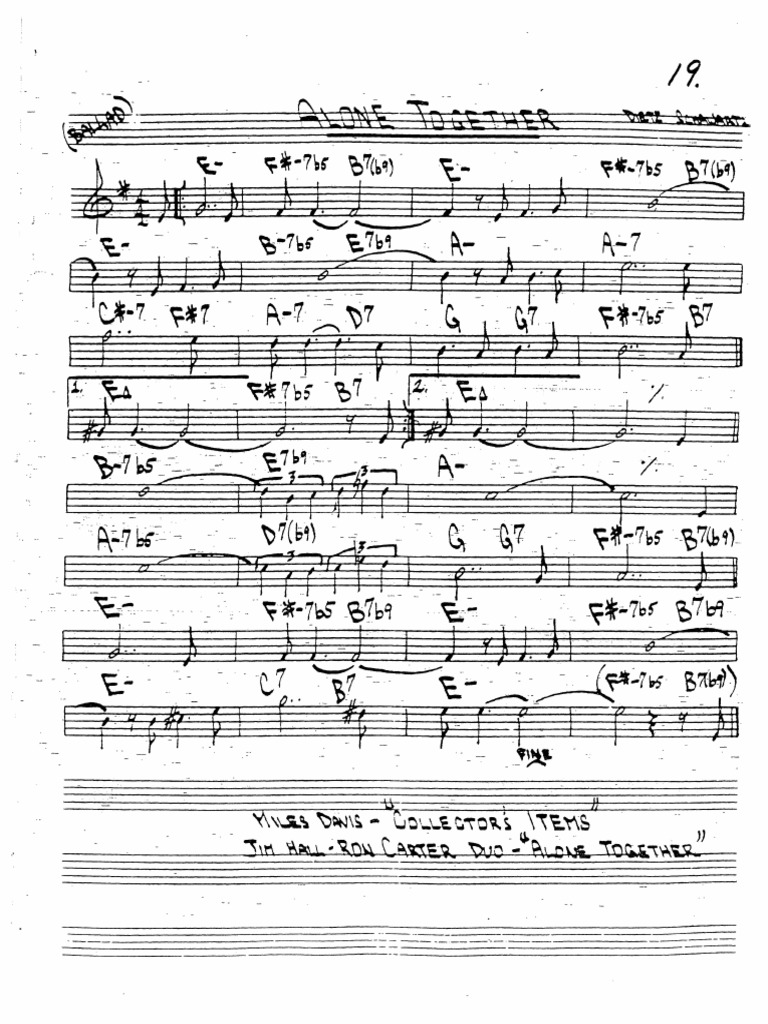 19.
(BALLAD) ALONE TOGETHER DIETZ SCHWARTZ
E- F#-7b5 B7(b9) E- F#-7b5 B7(b9)
E- B-7b5 E7b9 A- A-7
C#-7 F#7 A-7 D7 G G7 F#-7b5 B7
1. E△ F#-7b5 B7 2. E△ ٪
B-7b5 E7b9 A- ٪
3 3
A-7b5 D7(b9) G G7 F#-7b5 B7(b9)
3 3
E- F#-7b5 B7b9 E- F#-7b5 B7b9
E- C7 B7 E- (F#-7b5 B7(b9))
FINE
MILES DAVIS - "COLLECTOR'S ITEMS"
JIM HALL - RON CARTER DUO - "ALONE TOGETHER"